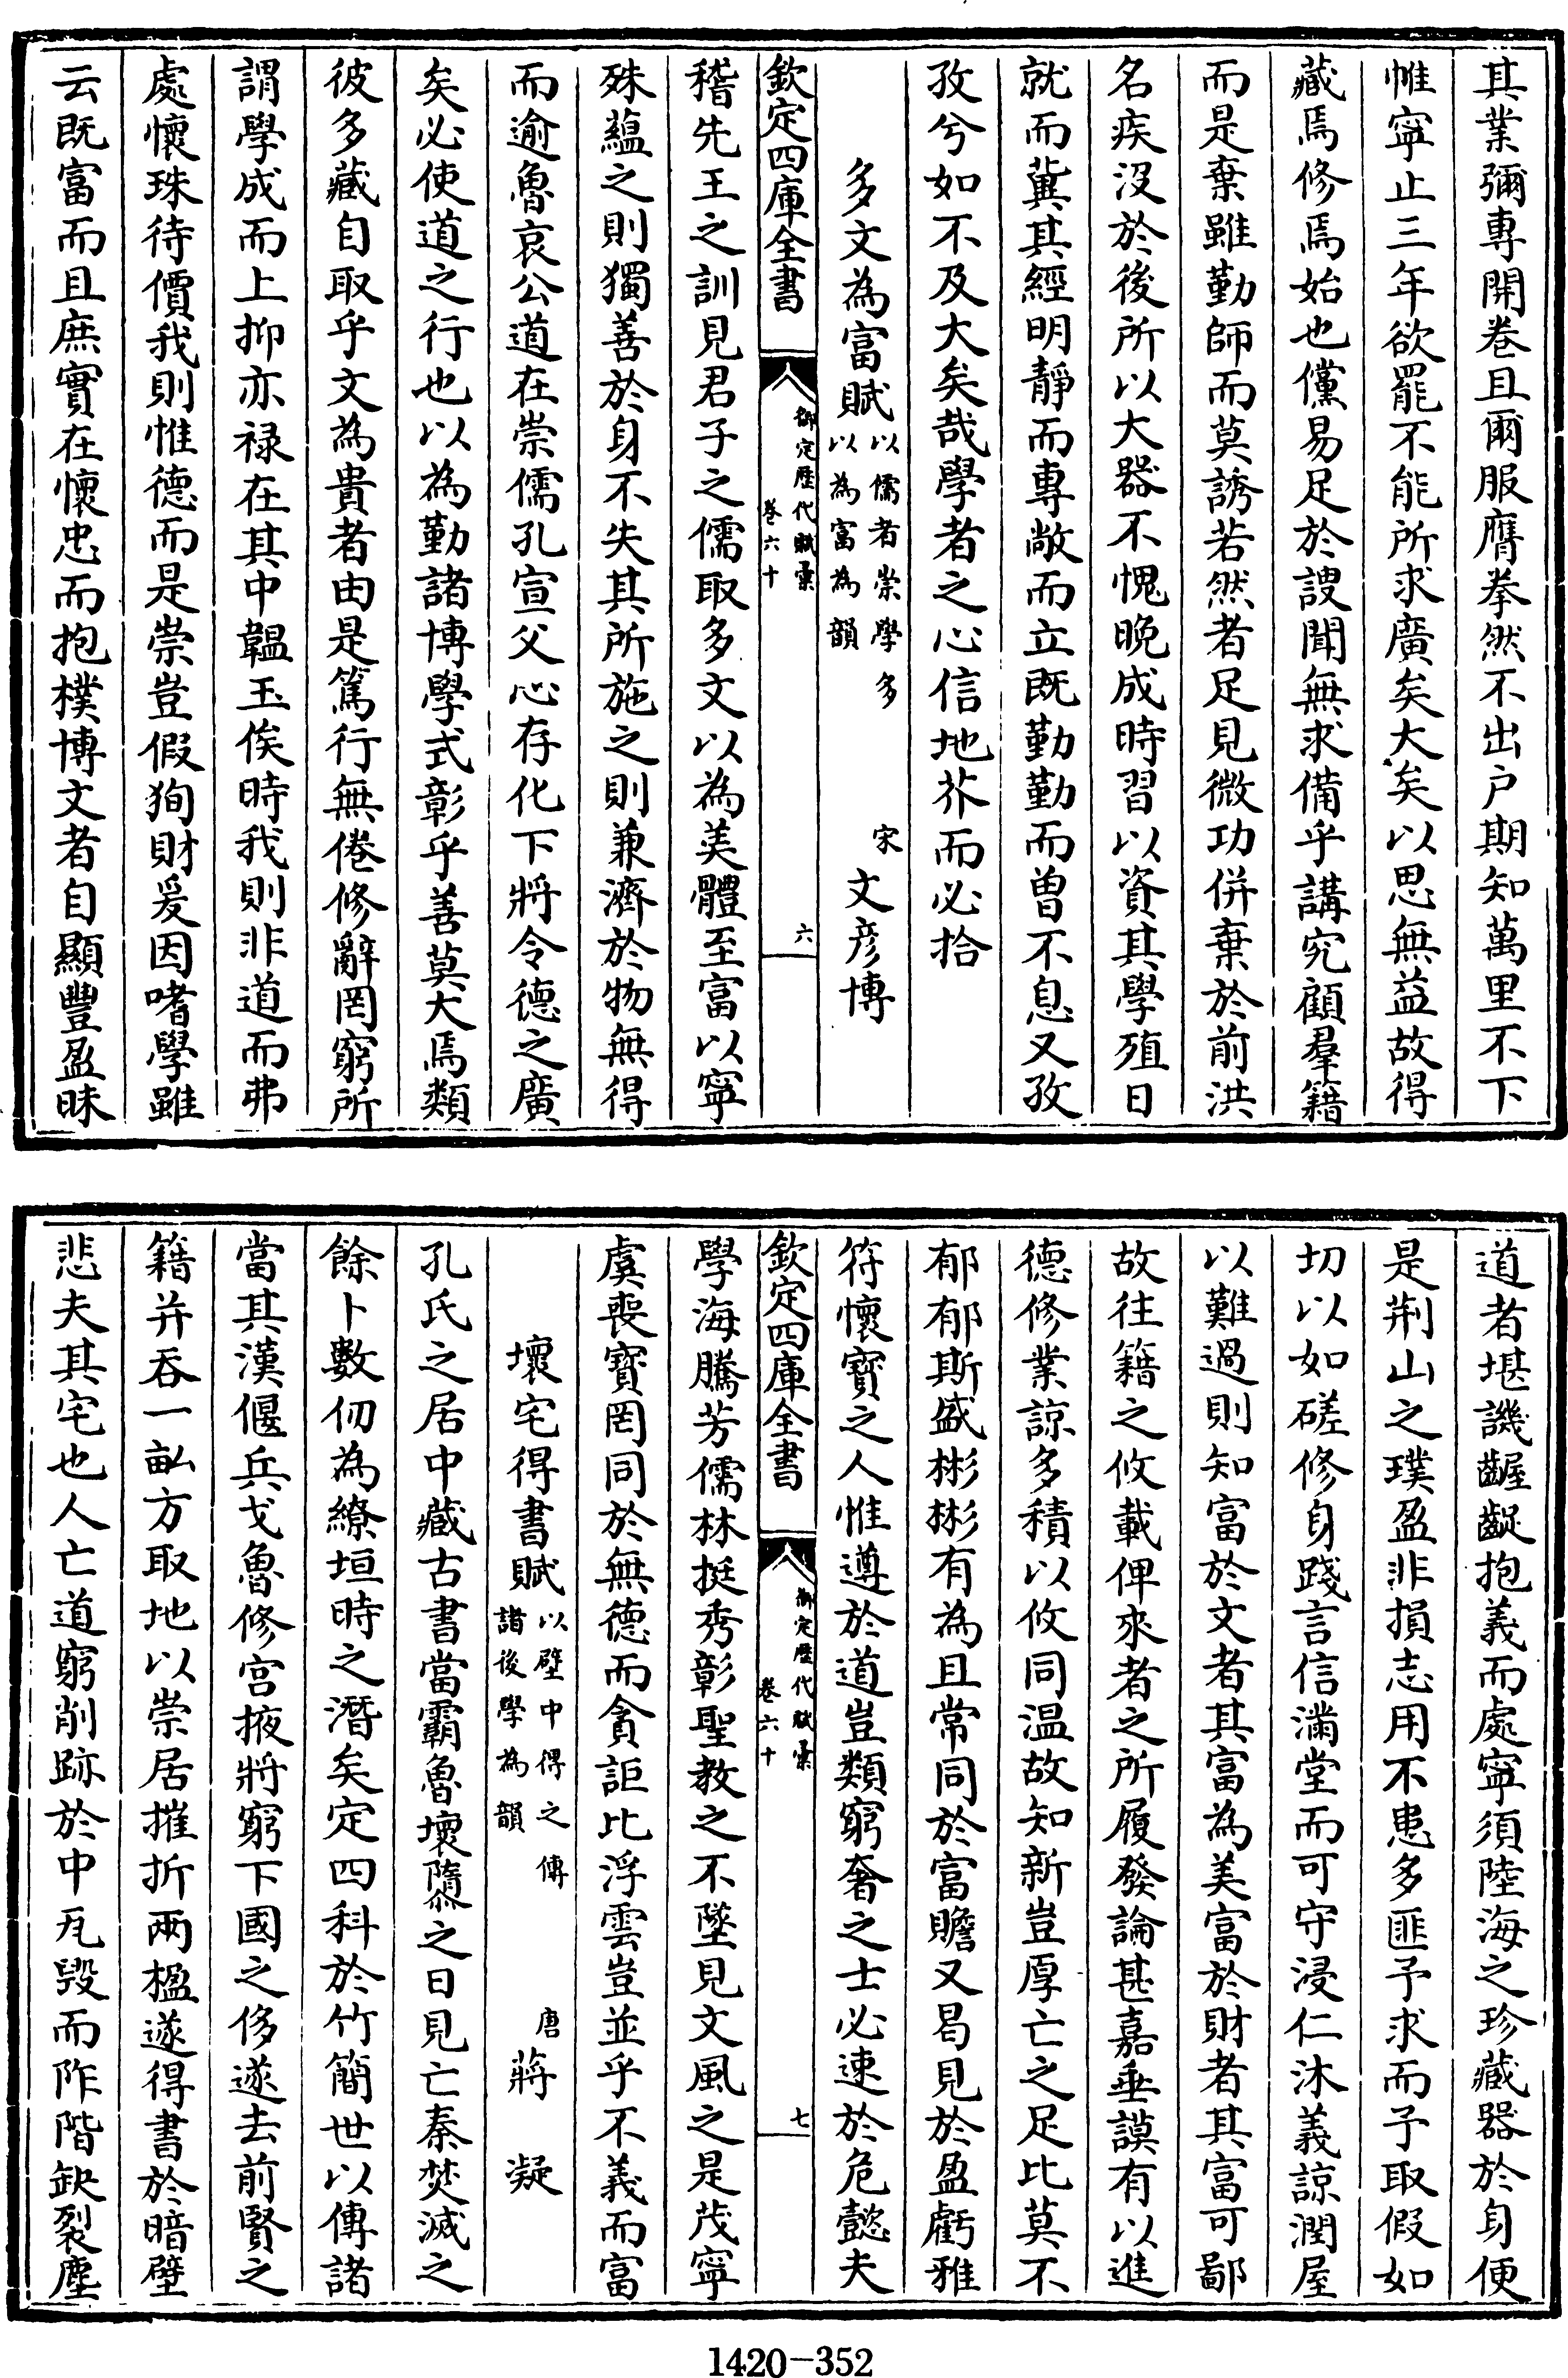 其業彌專開卷且爾服膺拳然不出户期知萬里不下
帷寜止三年欲罷不能所求廣矣大矣以思無益故得
藏焉修焉始也儻易足於謏聞無求備乎講究顧羣籍
而是棄雖勤師而莫誘若然者足見微功併棄於前洪
名疾沒於後所以大器不愧晩成時習以資其學殖日
就而冀其經明靜而專敞而立既勤勤而曽不息又孜
孜兮如不及大矣哉學者之心信地芥而必拾
多文為富賦以儒者崇學多以為富為韻 宋文彦博
欽定四庫全書 御定歴代賦彚卷六十 六
稽先王之訓見君子之儒取多文以為美體至富以寜
殊蘊之則獨善於身不失其所施之則兼濟於物無得
而逾魯哀公道在崇儒孔宣父心存化下將令德之廣
矣必使道之行也以為勤諸博學式彰乎善莫大焉類
彼多藏自取乎文為貴者由是篤行無倦修辭罔窮所
謂學成而上抑亦禄在其中韞玉俟時我則非道而弗
處懷珠待價我則惟德而是崇豈假狥財爰因嗜學雖
云既富而且庶實在懷忠而抱樸博文者自顯豐盈昧
道者堪譏齷齪抱義而處寜須陸海之珍藏器於身便
是荆山之璞盈非損志用不患多匪予求而予取假如
切以如磋修身踐言信滿堂而可守浸仁沐義諒潤屋
以難過則知富於文者其富為美富於財者其富可鄙
故往籍之攸載俾來者之所履發論甚嘉垂謨有以進
德修業諒多積以攸同温故知新豈厚亡之足比莫不
郁郁斯盛彬彬有為且常同於富贍又曷見於盈虧雅
符懷寶之人惟遵於道豈類窮奢之士必速於危懿夫
欽定四庫全書 御定歴代賦彚卷六十 七
學海騰芳儒林挺秀彰聖教之不墜見文風之是茂寜
虞喪寶罔同於無德而貪詎比浮雲豈並乎不義而富
壞宅得書賦以壁中得之傳諸後學為韻 唐蔣凝
孔氏之居中藏古書當霸魯壞隳之日見亡秦焚滅之
餘卜數仞為繚垣時之潛矣定四科於竹簡世以傳諸
當其漢偃兵戈魯修宫掖將窮下國之侈遂去前賢之
籍并吞一畝方取地以崇居摧折兩楹遂得書於暗壁
悲夫其宅也人亡道窮削跡於中瓦毁而阼階缺裂塵
1420-352